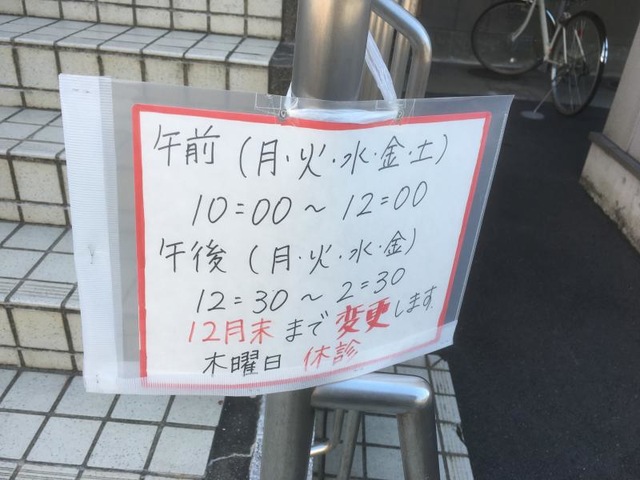 午前（月・火・水・金・土）
10=00〜12=00
午後（月・火・水・金）
12=30〜2=30
12月末まで変更します
木曜日 休診